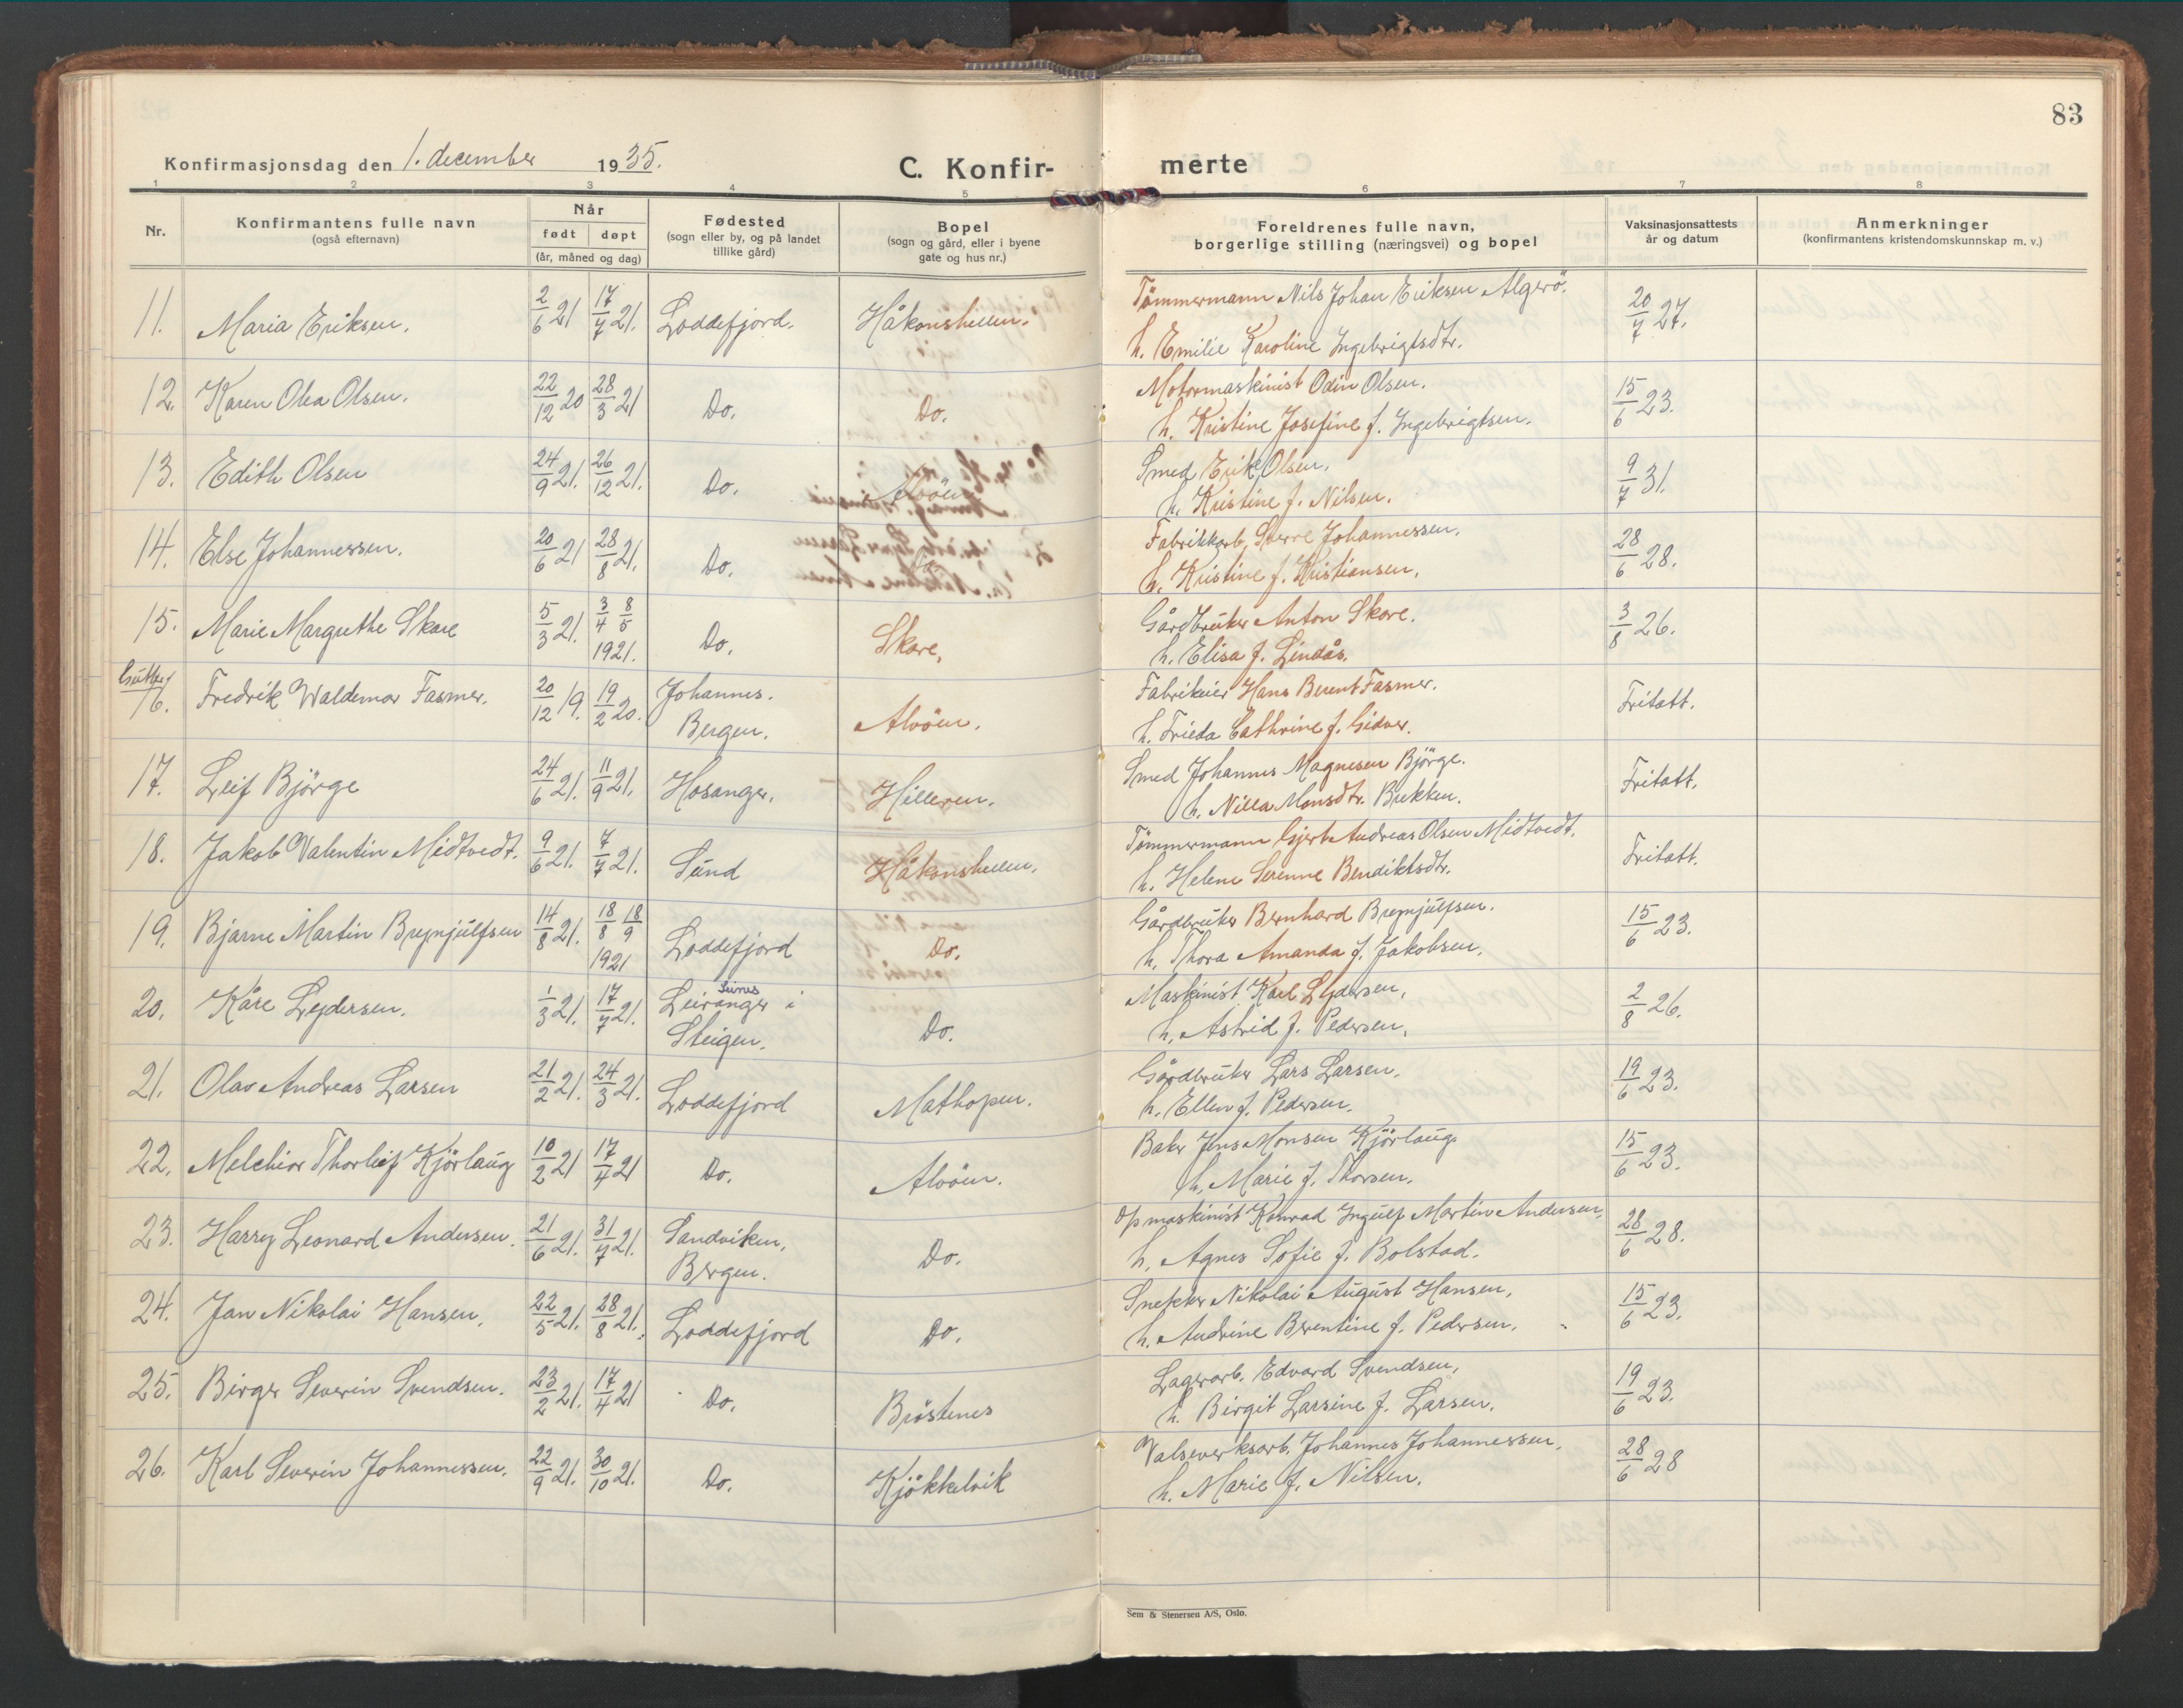 83
Konfirmasjonsdag den 1. december 1935.
C. Konfir- merte
1 2 3 4 5 6 7 8
Nr.
Konfirmantens fulle navn
(også efternavn)
Når
født døpt
(år, måned og dag)
Fødested
(sogn eller by, og på landet
tillike gård)
Bopel
(sogn og gård, eller i byene
gate og hus nr.)
Foreldrenes fulle navn,
borgerlige stilling (næringsvei) og bopel
Vaksinasjonsattests
år og datum
Anmerkninger
(konfirmantens kristendomskunnskap m. v.)
11. Maria Eriksen. 2/6 21 17/7 21. Loddefjord. Håkonshellen. Tömmermann Nils Johan Eriksen Algerö. 20/7 27.
h. Emilie Karoline Ingebrigtsdtr.
12. Karen Olea Olsen. 22/12 20 28/3 21 Do. Do. Motormaskinist Odin Olsen. 15/6 23.
h. Kristine Josefine f. Ingebrigtsen.
13. Edith Olsen 24/9 21. 26/12 21. Do. Alvöen Smed Erik Olsen. 9/7 31.
h. Kristine f. Nilsen.
14. Else Johannessen. 20/6 21 28/8 21. Do. Do. Fabrikkarb. Sverre Johannessen. 28/6 28.
h. Kristine f. Kristiansen.
15. Marie Margrethe Skare 5/3 21. 3/4 8/5 1921. Do. Skare. Gårdbruker Anton Skare. 3/8 26.
h. Elisa f. Lindås.
Gutter
16. Fredrik Waldemar Fasmer. 20/12 19. 19/2 20. Johannes. Bergen. Alvöen. Fabrikeier Hans Berent Fasmer. Fritatt.
h. Frieda Cathrine f. Gidver.
17. Leif Björge 24/6 21. 11/9 21. Hosanger. Hilleren. Smed Johannes Magnesen Björge. Fritatt.
h. Nilla Monsdtr. Brekken.
18. Jakob Valentin Midtvedt. 9/6 21. 7/7 21. Sund Håkonshellen. Tömmermann Gjert Andreas Olsen Midtvedt. Fritatt.
h. Helene Serenne Bendiktsdtr.
19. Bjarne Martin Brynjulfsen 14/8 21. 18/8 18/9 1921 Loddefjord Do. Gårdbruker Bernhard Brynjulfsen. 15/6 23.
h. Thora Amanda f. Jakobsen.
20. Kåre Lejdersen. 1/3 21. 17/7 21. Leiranger i Steigen. Do. Maskinist Karl Lejdersen. 2/8 26.
h. Astrid f. Pedersen.
21. Olav Andreas Larsen 21/2 21. 24/3 21. Loddefjord Mathopen. Gårdbruker Lars Larsen. 19/6 23.
h. Ellen f. Pedersen.
22. Melchior Thorleif Kjörlaug 10/2 21 17/4 21 Do. Alvöen. Baker Jens Monsen Kjörlaug 15/6 23.
h. Marie f. Thorsen.
23. Harry Leonard Andersen. 21/6 21. 31/7 21. Sandviken, Bergen. Do. Op maskinist Konrad Ingulf Martin Andersen, 28/6 28.
h. Agnes Sofie f. Bolstad.
24. Jan Nikolai Hansen. 22/5 21. 28/8 21. Loddefjord Do. Snekker Nikolai August Hansen, 15/6 23.
h. Andrine Berentine f. Pedersen.
25. Birger Severin Svendsen. 23/2 21. 17/4 21 Do. Bröstenes Lagerarb. Edvard Svendsen, 19/6 23.
h. Birgit Larsine f. Larsen.
26. Karl Severin Johannessen. 22/9 21. 30/10 21. Do. Kjökkelvik Valseverksarb. Johannes Johannessen, 28/6 28
h. Marie f. Nilsen.
Sem & Stenersen A/S, Oslo.